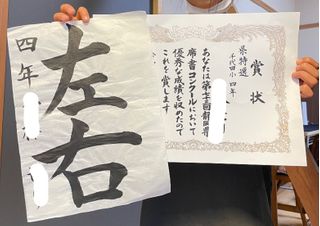 左右
四年
賞状
県特選
千代田小 四年
あなたは第
席書コンクールにおいて
優秀な成績を収めたので
これを賞します